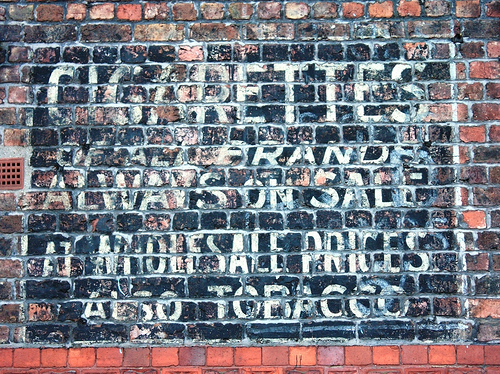 CIGARETTES
OF ALL BRANDS
ALWAYS ON SALE
AT WHOLESALE PRICES
ALSO TOBACCO